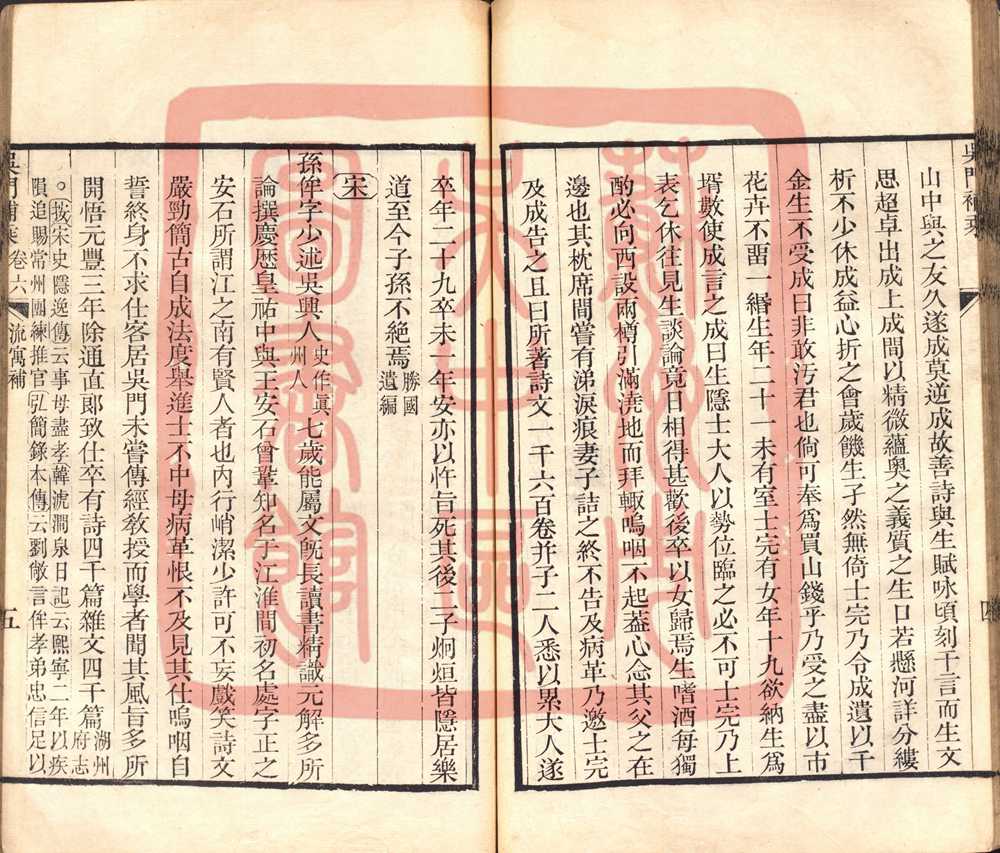 吳門補乘
山中與之友久遂成莫逆成故善詩與生賦咏頃刻千言而生文
思超卓出成上成間以精微蘊奧之義質之生口若懸河詳分縷
析不少休成益心折之會歲饑生孑然無倚士完乃令成遺以千
金生不受成曰非敢汚君也倘可奉爲買山錢乎乃受之盡以市
花卉不畱一緡生年二十一未有室士完有女年十九欲納生爲
壻數使成言之成曰生隱士大人以勢位臨之必不可士完乃上
表乞休往見生談論竟日相得甚歡後卒以女歸焉生嗜酒每獨
酌必向西設兩樽引滿澆地而拜輙嗚咽不起葢心念其父之在
邊也其枕席間嘗有涕淚痕妻子詰之終不告及病革乃邀士完
及成告之且曰所著詩文一千六百卷并子二人悉以累大人遂
卒年二十九卒未一年安亦以忤旨死其後二子炯烜皆隱居樂
道至今子孫不絕焉勝國遺編
宋
孫侔字少述吳興人史作眞州人七歲能屬文旣長讀書精識元解多所
論撰慶厯皇祐中與王安石曾鞏知名于江淮間初名處字正之
安石所謂江之南有賢人者也內行峭潔少許可不妄戲笑詩文
嚴勁簡古自成法度舉進士不中母病革恨不及見其仕嗚咽自
誓終身不求仕客居吳門未嘗傳經敎授而學者聞其風旨多所
開悟元豐三年除通直郎致仕卒有詩四千篇雜文四千篇湖州府志
。按宋史隱逸傳云事母盡孝韓淲澗泉日記云熙寧二年以疾
隕追賜常州團練推官弘簡錄本傳云劉敞言侔孝弟忠信足以
吳門補乘 卷六 流寓補 五